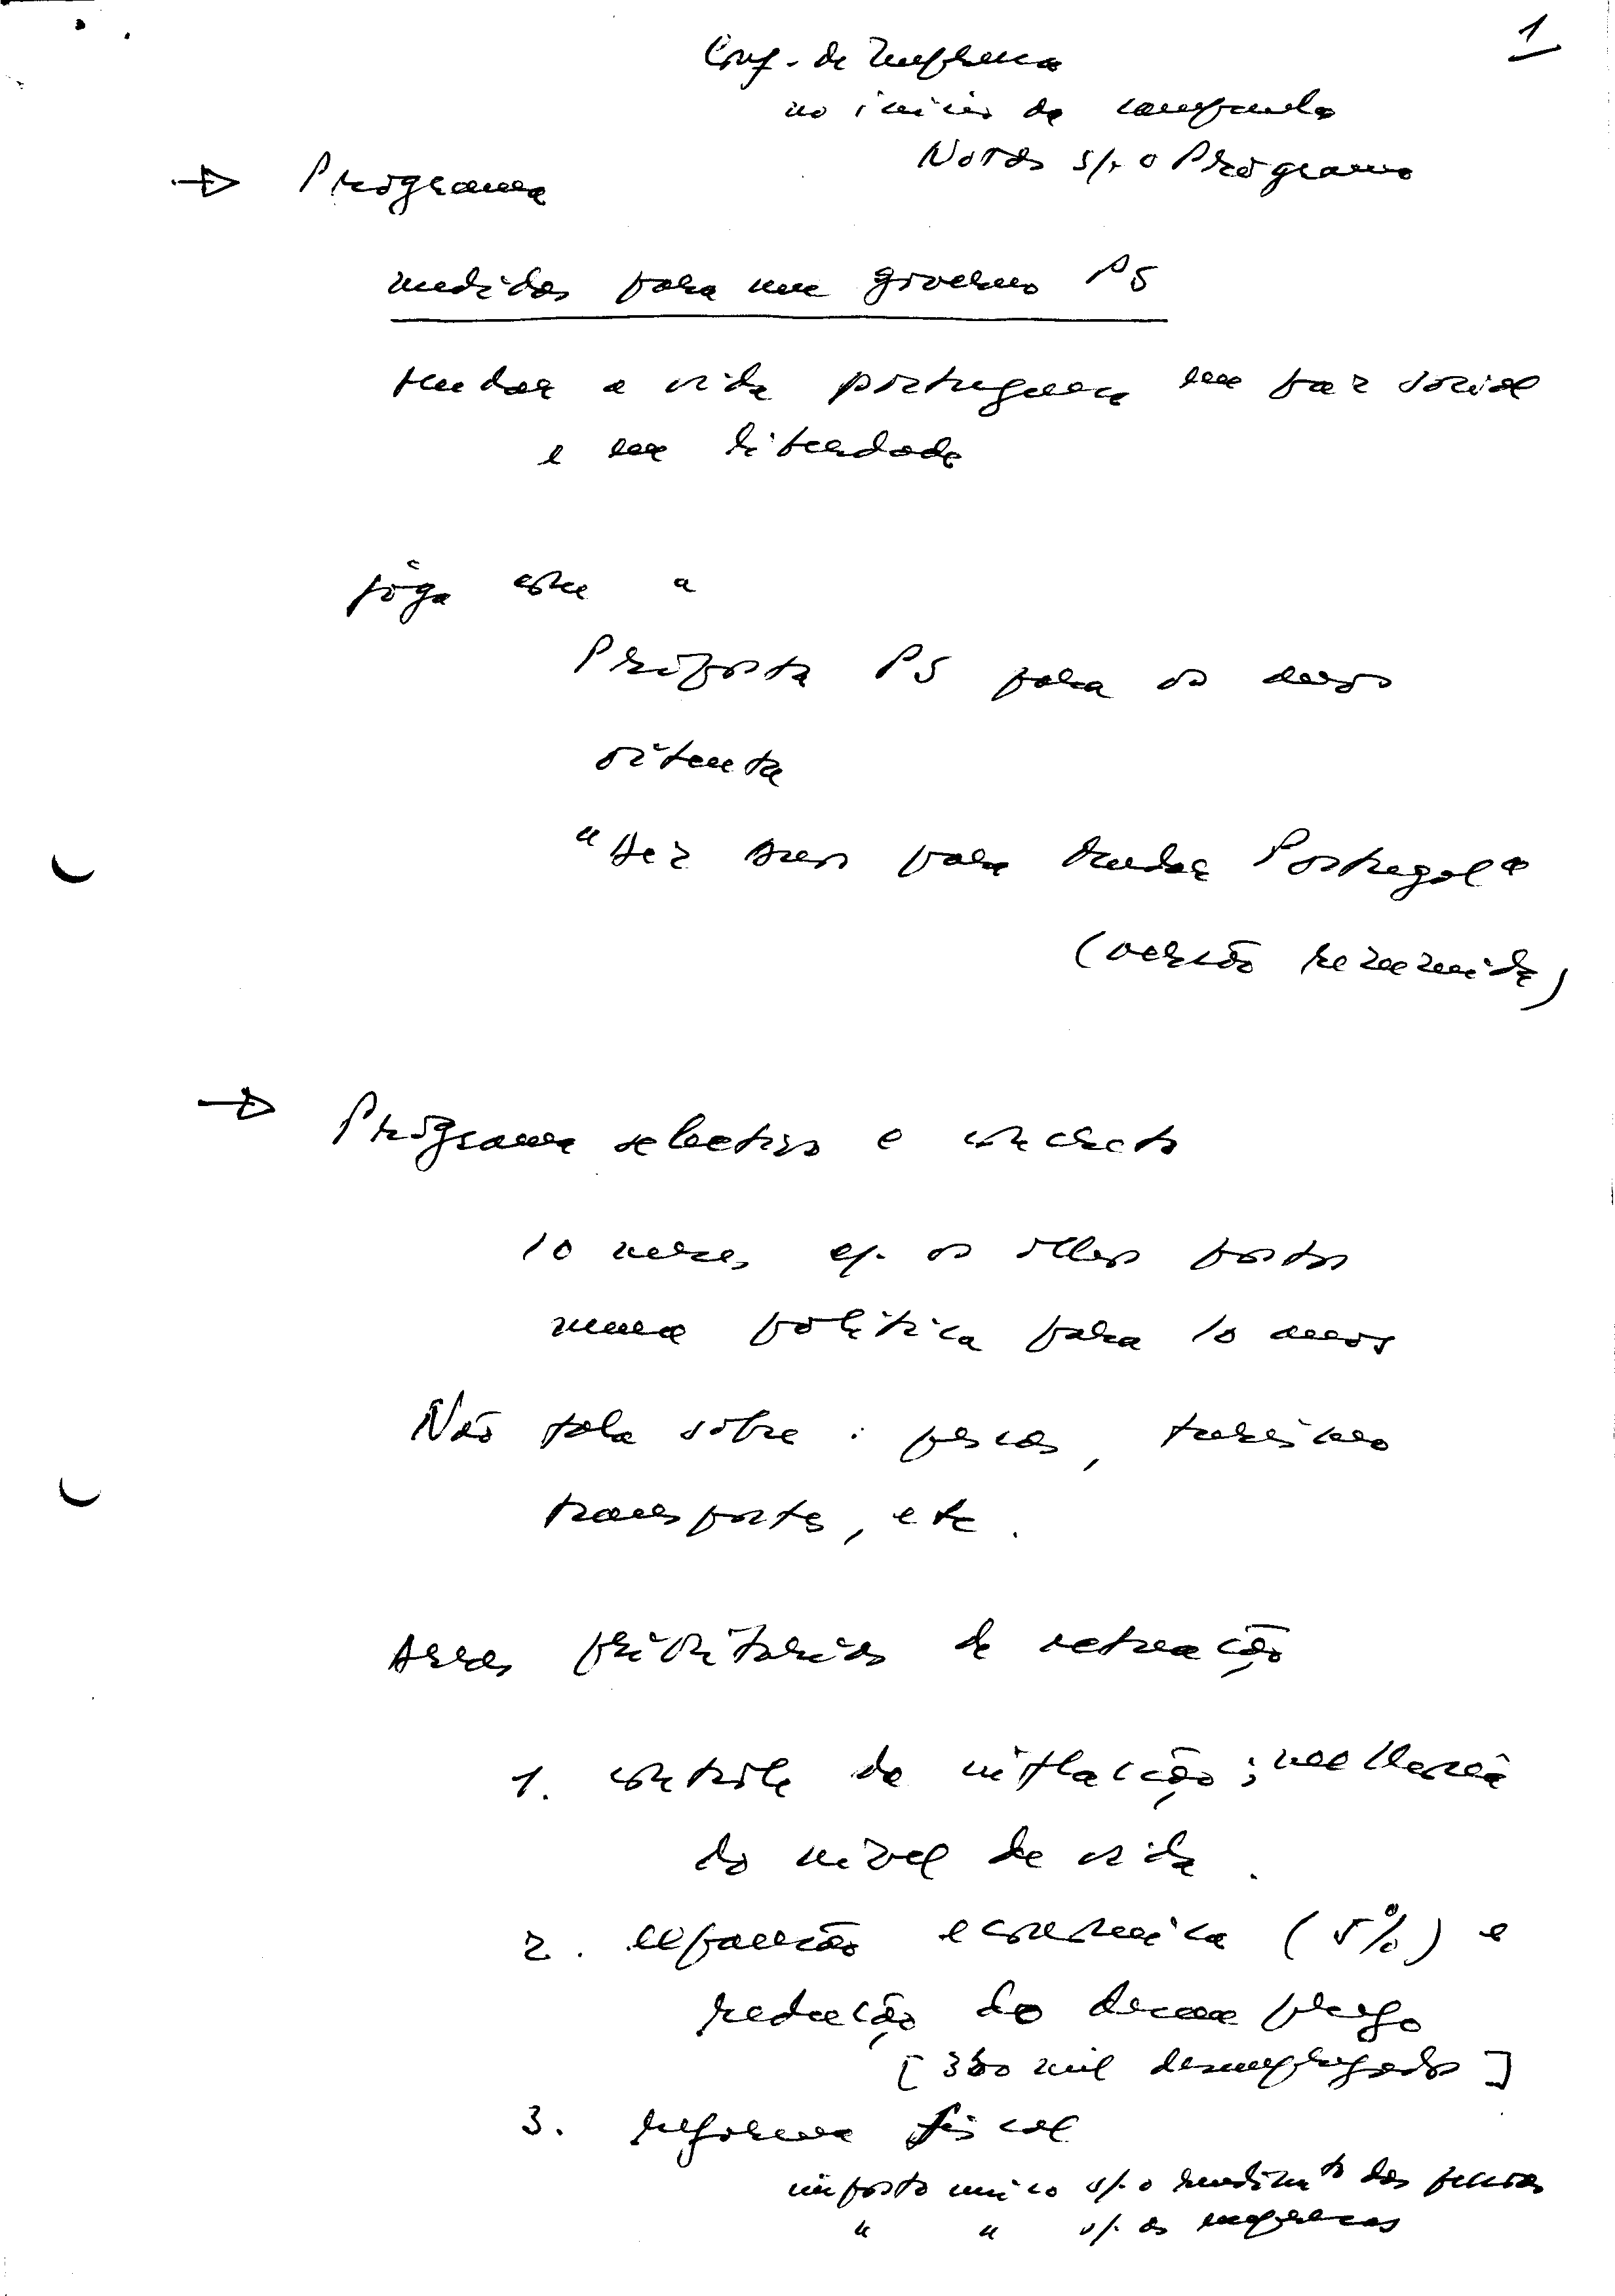 1
Conf. de Imprensa
no início da campanha
Notas s/. o Programa
→ Programa
medidas para um governo PS
mudar a vida portuguesa em paz social
e em liberdade
joga com a
Proposta PS para os anos
oitenta
"Dez anos para mudar Portugal"
(versão resumida)
→ Programa selectivo e concreto
10 meses, c/. os olhos postos
numa política para 10 anos
Não fala sobre: pescas, turismo
transportes, etc.
Áreas prioritárias de actuação
1. controle da inflacção; melhoria
do nível de vida.
2. expansão económica (5%) e
redução do desemprego
[350 mil desempregados]
3. reforma fiscal
imposto único s/. o rendimto das pessoas
" " s/. as empresas